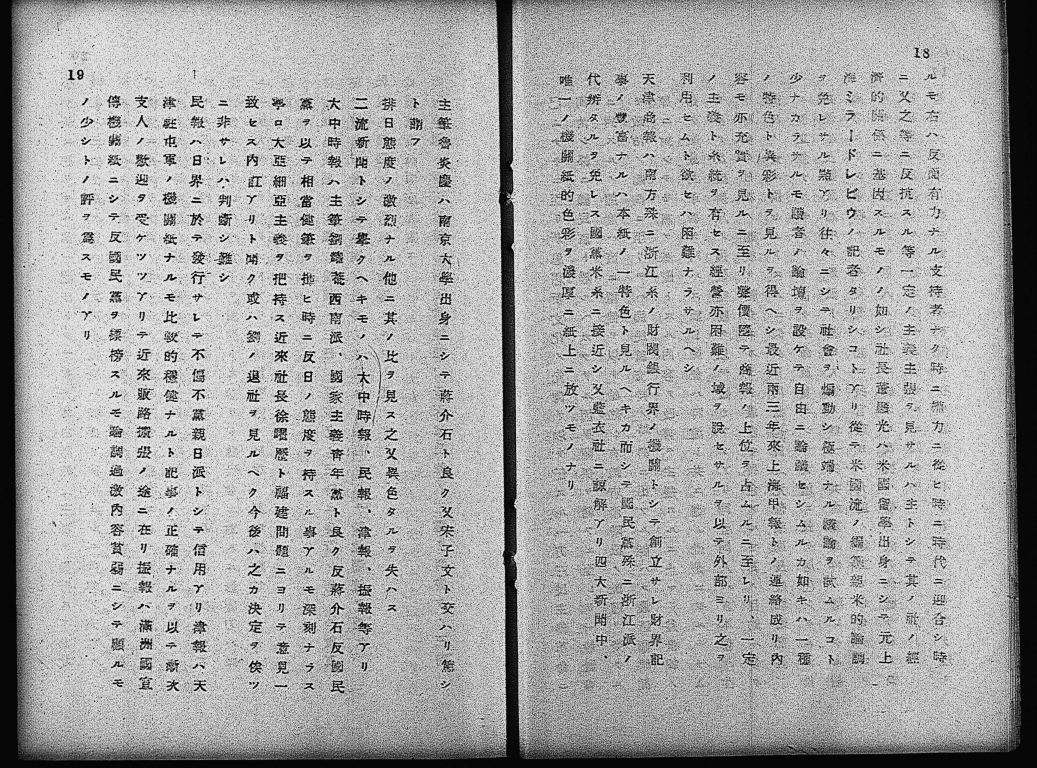 18
ルモ右ハ反國有力ナル支持者ナク時ニ權力ニ從ヒ時ニ時代ニ迎合シ時
ニ又之等ニ反抗スル等一定ノ主義主張ヲ見サルハ主トシテ其ノ社ノ經
濟的關係ニ基因スルモノノ如シ社長董顯光ハ米國留學出身ニシテ元上
海ミラードレビウノ記者タリシコトアリ從テ米國流ノ編輯親米的論調
ヲ免レサル點アリ往々ニシテ社會ヲ煽動シ極端ナル議論ヲ試ムルコト
少ナカラサルモ讀者ノ論壇ヲ設ケテ自由ニ論議セシムルカ如キハ一種
ノ特色ト異彩トヲ見ルヲ得ヘシ最近兩三年來上海申報トノ連絡成リ內
容モ亦充實ヲ見ルニ至リ聲價隆テ商報ノ上位ヲ占ムルニ至レリ、一定
ノ主義ト系統ヲ有セス經營亦困難ノ域ヲ脫セサルヲ以テ外部ヨリ之ヲ
利用セムト欲セハ困難ナラサルヘシ
天津商報ハ南方殊ニ浙江系ノ財閥銀行界ノ機關トシテ創立サレ財界記
事ノ豐富ナルハ本紙ノ一特色ト見ルヘキカ而シテ國民黨殊ニ浙江派ノ
代辨タルヲ免レス國黨米系ニ接近シ又藍衣社ニ諒解アリ四大新聞中、
唯一ノ機關紙的色彩ヲ濃厚ニ紙上ニ放ツモノナリ
19
主筆魯炎慶ハ南京大學出身ニシテ蔣介石ト良ク又宋子文ト交ハリ篤シ
ト謂フ
排日態度ノ激烈ナル他ニ其ノ比ヲ見ス之又異色タルヲ失ハス
二流新聞トシテ擧クヘキモノハ大中時報、民報、津報、振報等アリ
大中時報ハ主筆劉鐵菴西南派、國家主義靑年黨ト良ク反蔣介石反國民
黨ヲ以テ相當健筆ヲ揮ヒ時ニ反日ノ態度ヲ持スル事アルモ深刻ナラス
寧ロ大亞細亞主義ヲ把持ス近來社長徐曜歷ト福建問題ニヨリテ意見一
致セス內訌アリト聞ク或ハ劉ノ退社ヲ見ルヘク今後ハ之カ決定ヲ俟ツ
ニ非サレハ判斷シ難シ
民報ハ日界ニ於テ發行サレテ不偏不黨親日派トシテ信用アリ津報ハ天
津駐屯軍ノ機關紙ナルモ比較的穩健ナルト記事ノ正確ナルヲ以テ漸次
支人ノ歡迎ヲ受ケツツアリテ近來販路擴張ノ途ニ在リ振報ハ滿洲國宣
傳機關紙ニシテ反國民黨ヲ標榜スルモ論調過激內容貧弱ニシテ顧ルモ
ノ少シトノ評ヲ爲スモノアリ